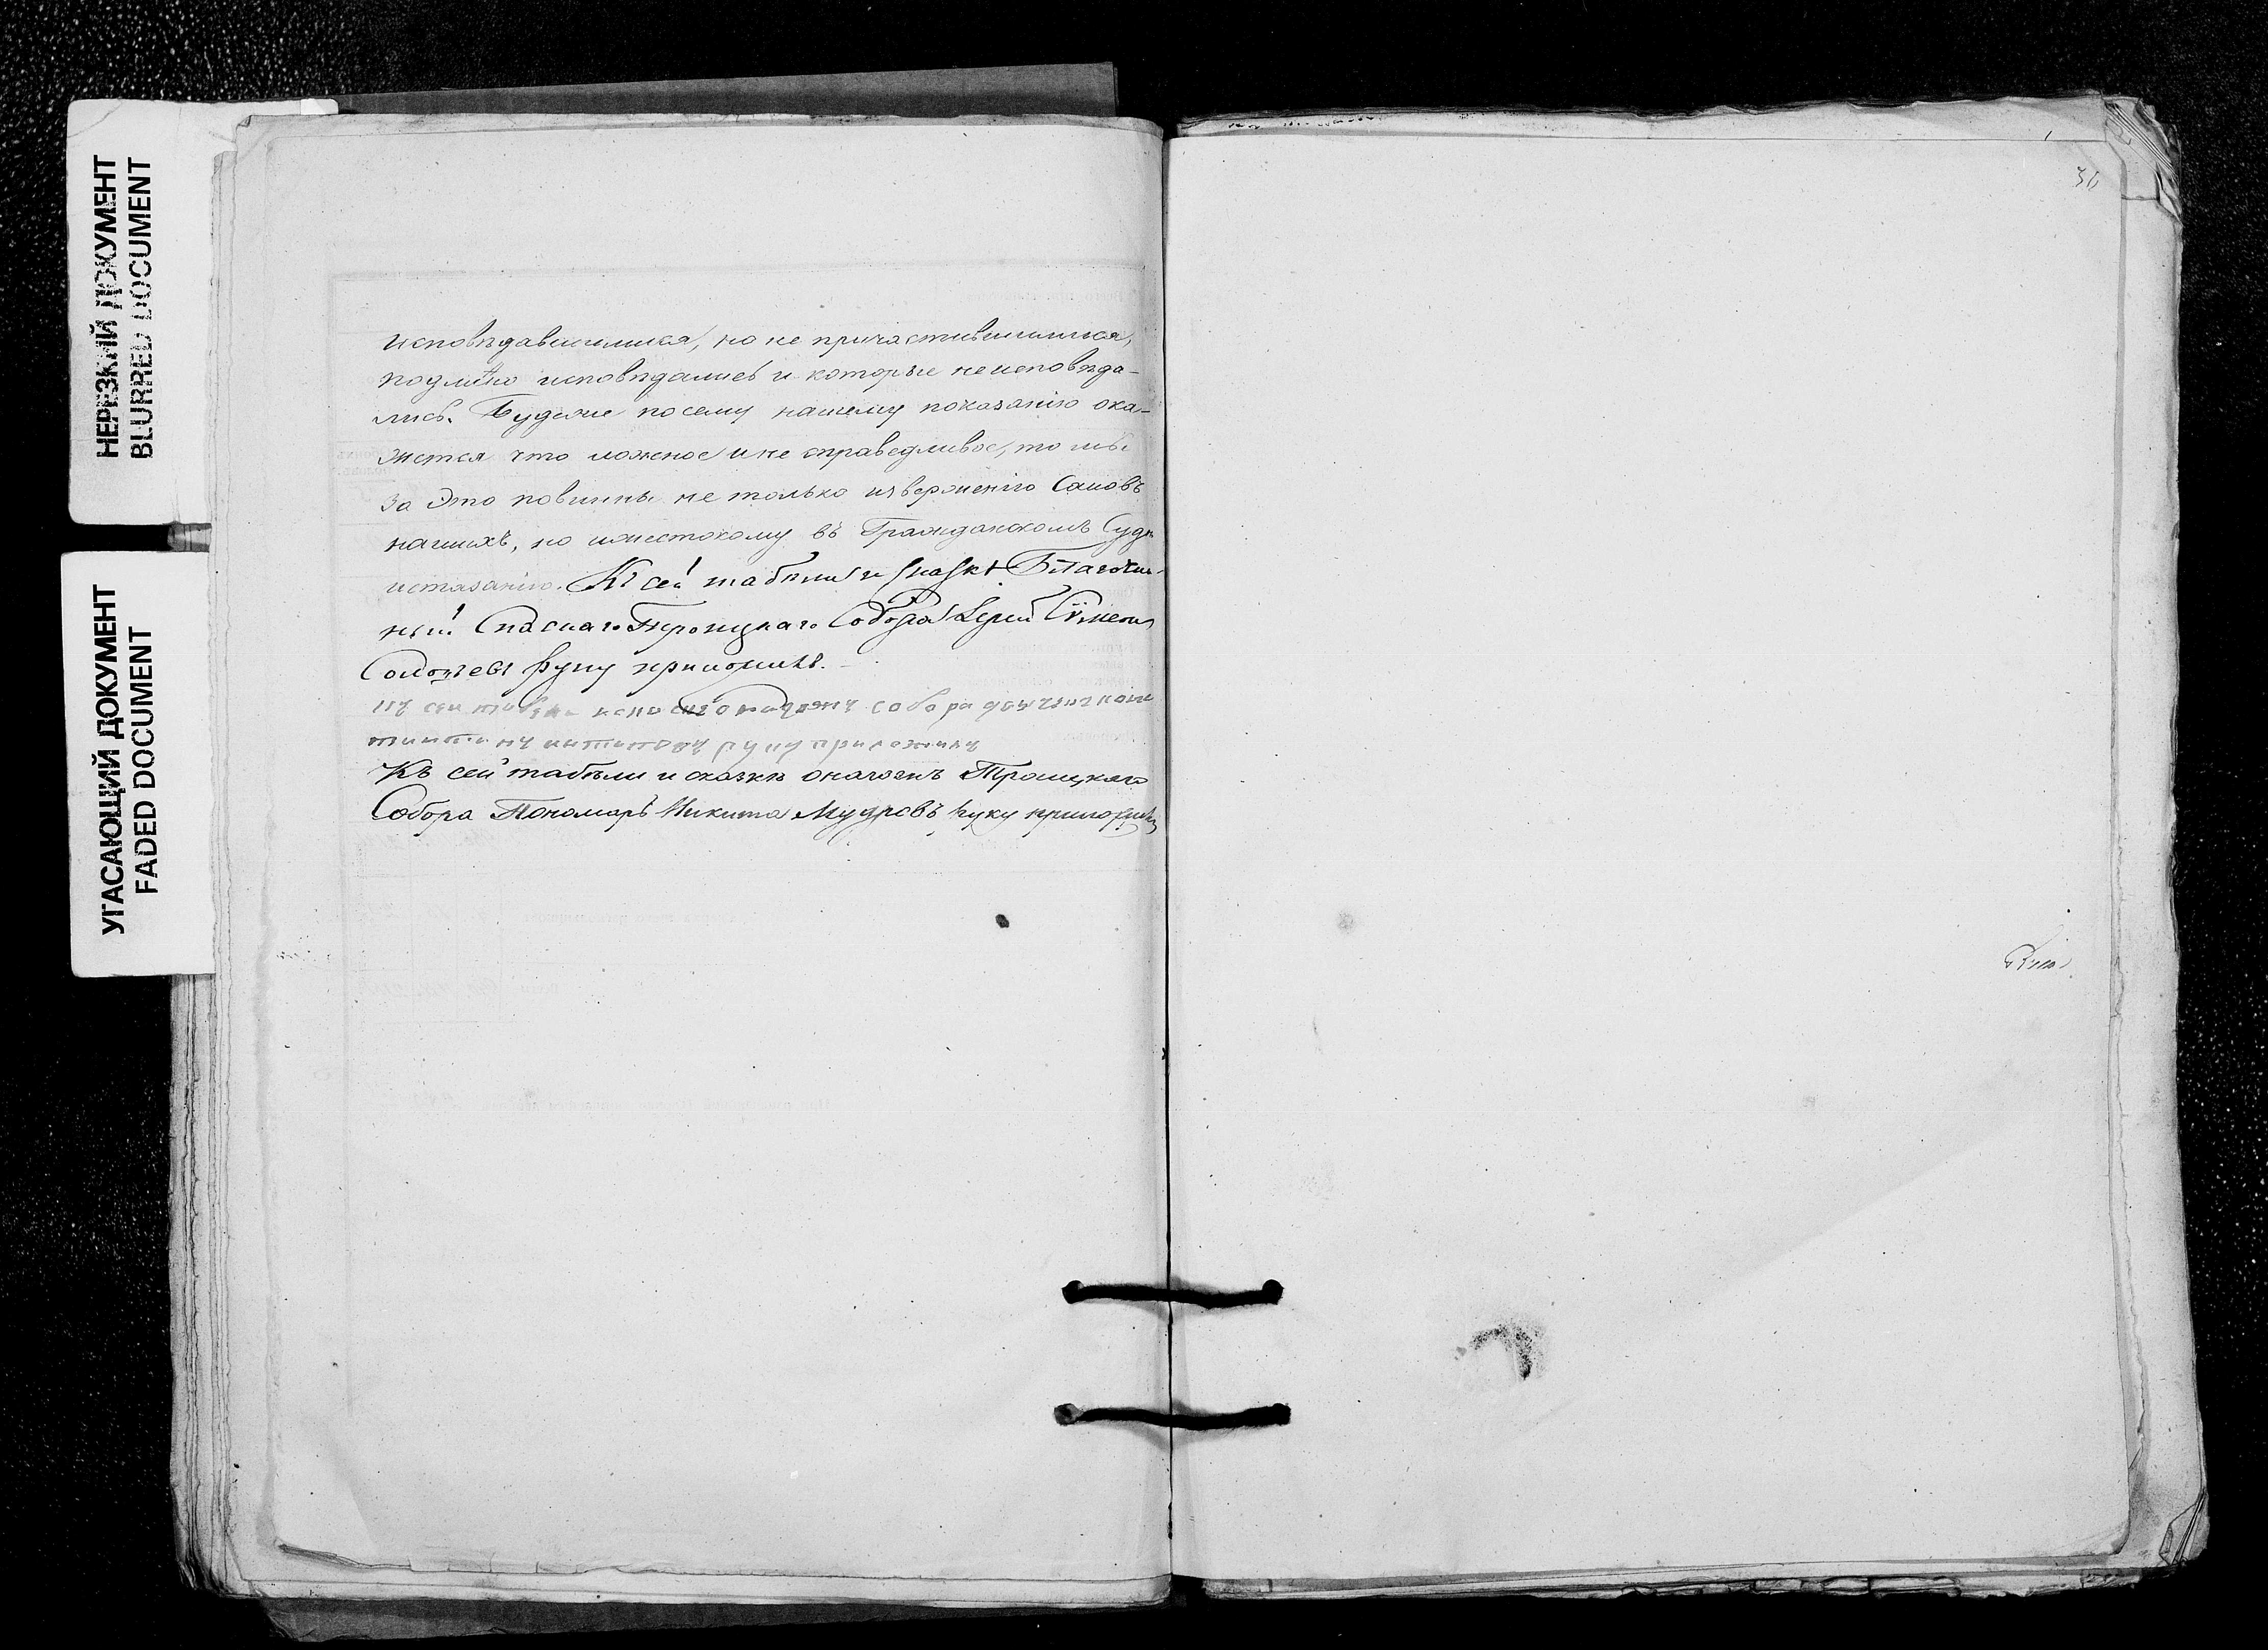 НЕРЕЗКИЙ ДОКУМЕНТ
BLURRED DOCUMENT
УГАСАЮЩИЙ ДОКУМЕНТ
FADED DOCUMENT
исповѣдавшимися, но не причастившимися,
подлинно исповѣдались и которые неисповѣда-
лись. Будеже посему нашему показанію ока-
жется что ложное и не справедливое, то мы
за Это повинны не только изверженію Сановъ
нашихъ, но ижестокому въ Гражданскомъ Судѣ
истязанію. Къ сей табели и скаскѣ Благочин-
ный Спаскаго Троицкаго Собора Іерей Сѵмеонъ
руку приложилъ.
собора
руку приложилъ
Къ сей табели и сказкѣ онагожъ Троицкаго
Собора Пономарь Никита Мудровъ руку приложилъ